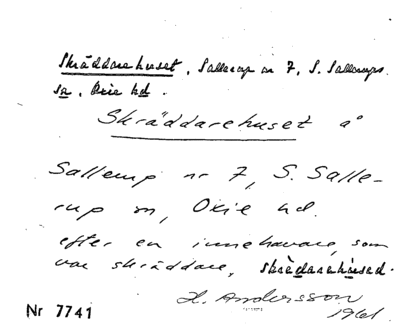 Skräddarehuset, Sallerup nr 7, S. Sallerups
sn, Oxie hd.
Skräddarehuset å
Sallerup nr 7, S. Salle-
rup sn, Oxie hd.
efter en innehavare, som
var skräddare, skräddarehused.
H. Andersson
1961
Nr 7741